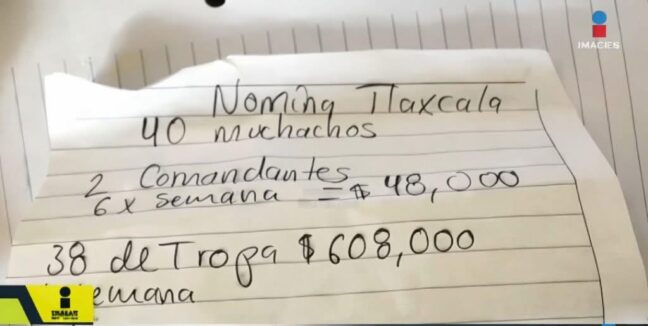 IMAGEN
Nomina Tlaxcala
40 muchachos
2 Comandantes
6 x semana = $ 48,000
38 de Tropa $ 608,000
semana